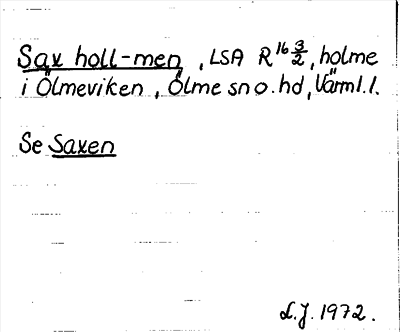 Sax holl-men, LSA R 16 3/2, holme
i Ölmeviken, Ölme sn o. hd, Värml. l.
Se Saxen
L.J. 1972.